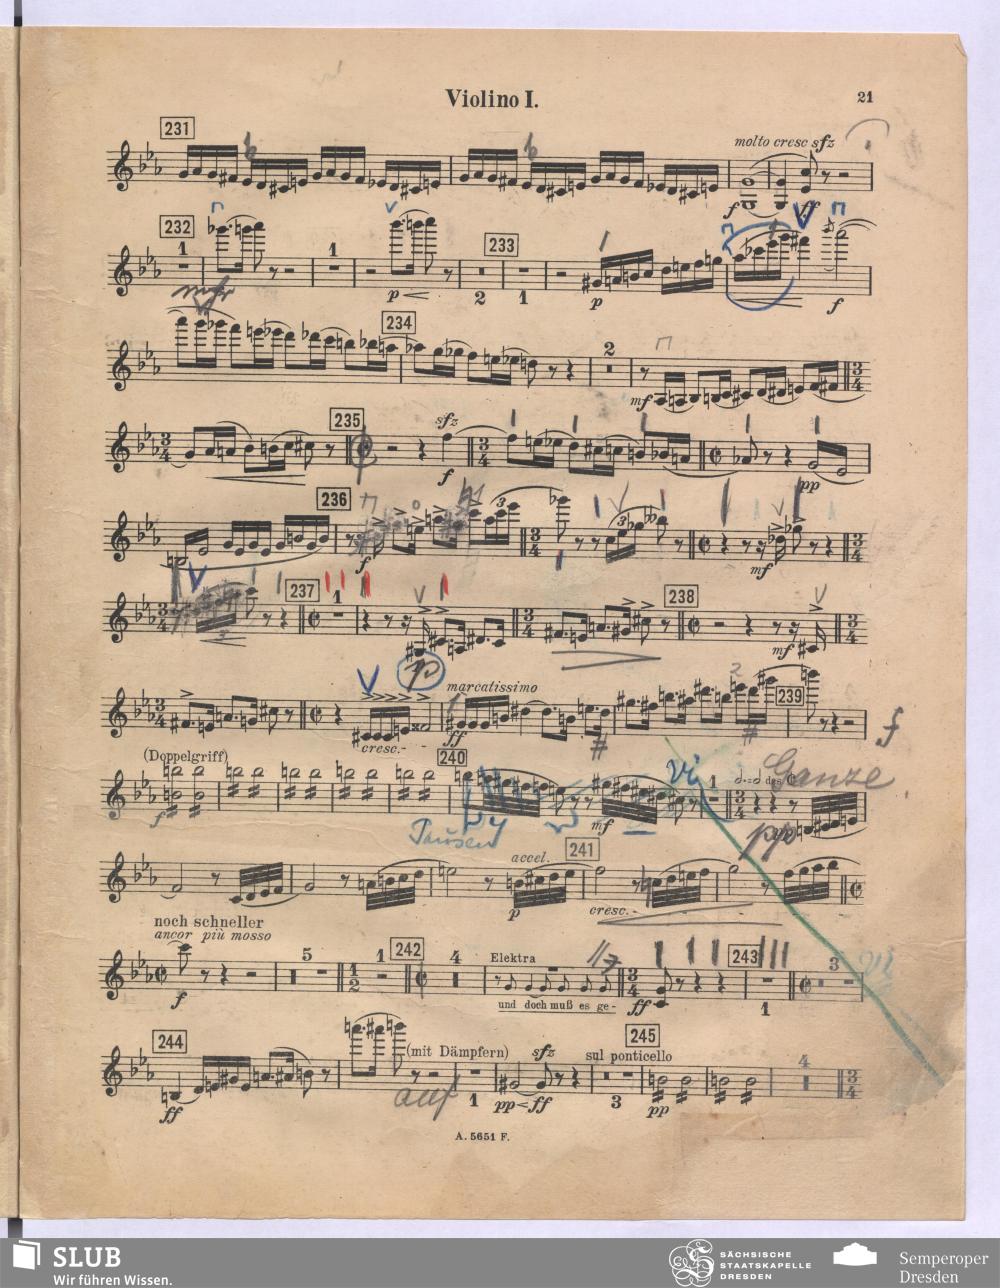 Violino I.
21
231
molto cresc sfz
f
ff
232
1
1
233
p
2
1
p
f
234
2
mf
235
sfz
f
pp
236
3
3
f
mf
237
1
238
mf
p
marcatissimo
239
cresc.
ff
f
(Doppelgriff)
240
1
Ganze
f
Pausen
mf
ppp
accel.
241
p
cresc.
noch schneller
ancor più mosso
5
1
242
4
Elektra
243
3
f
und doch muß es ge-
ff
1
244
(mit Dämpfern)
sfz
245
sul ponticello
4
ff
auf
1
pp
ff
3
pp
A. 5651 F.
SLUB
Wir führen Wissen.
SÄCHSISCHE
STAATSKAPELLE
DRESDEN
Semperoper
Dresden